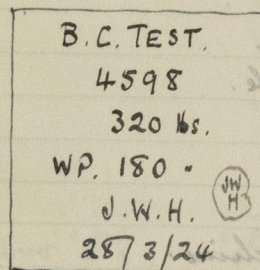 B.C. TEST.
4598
320 lbs.
WP. 180 .
JW
H
J.W.H.
28/3/24